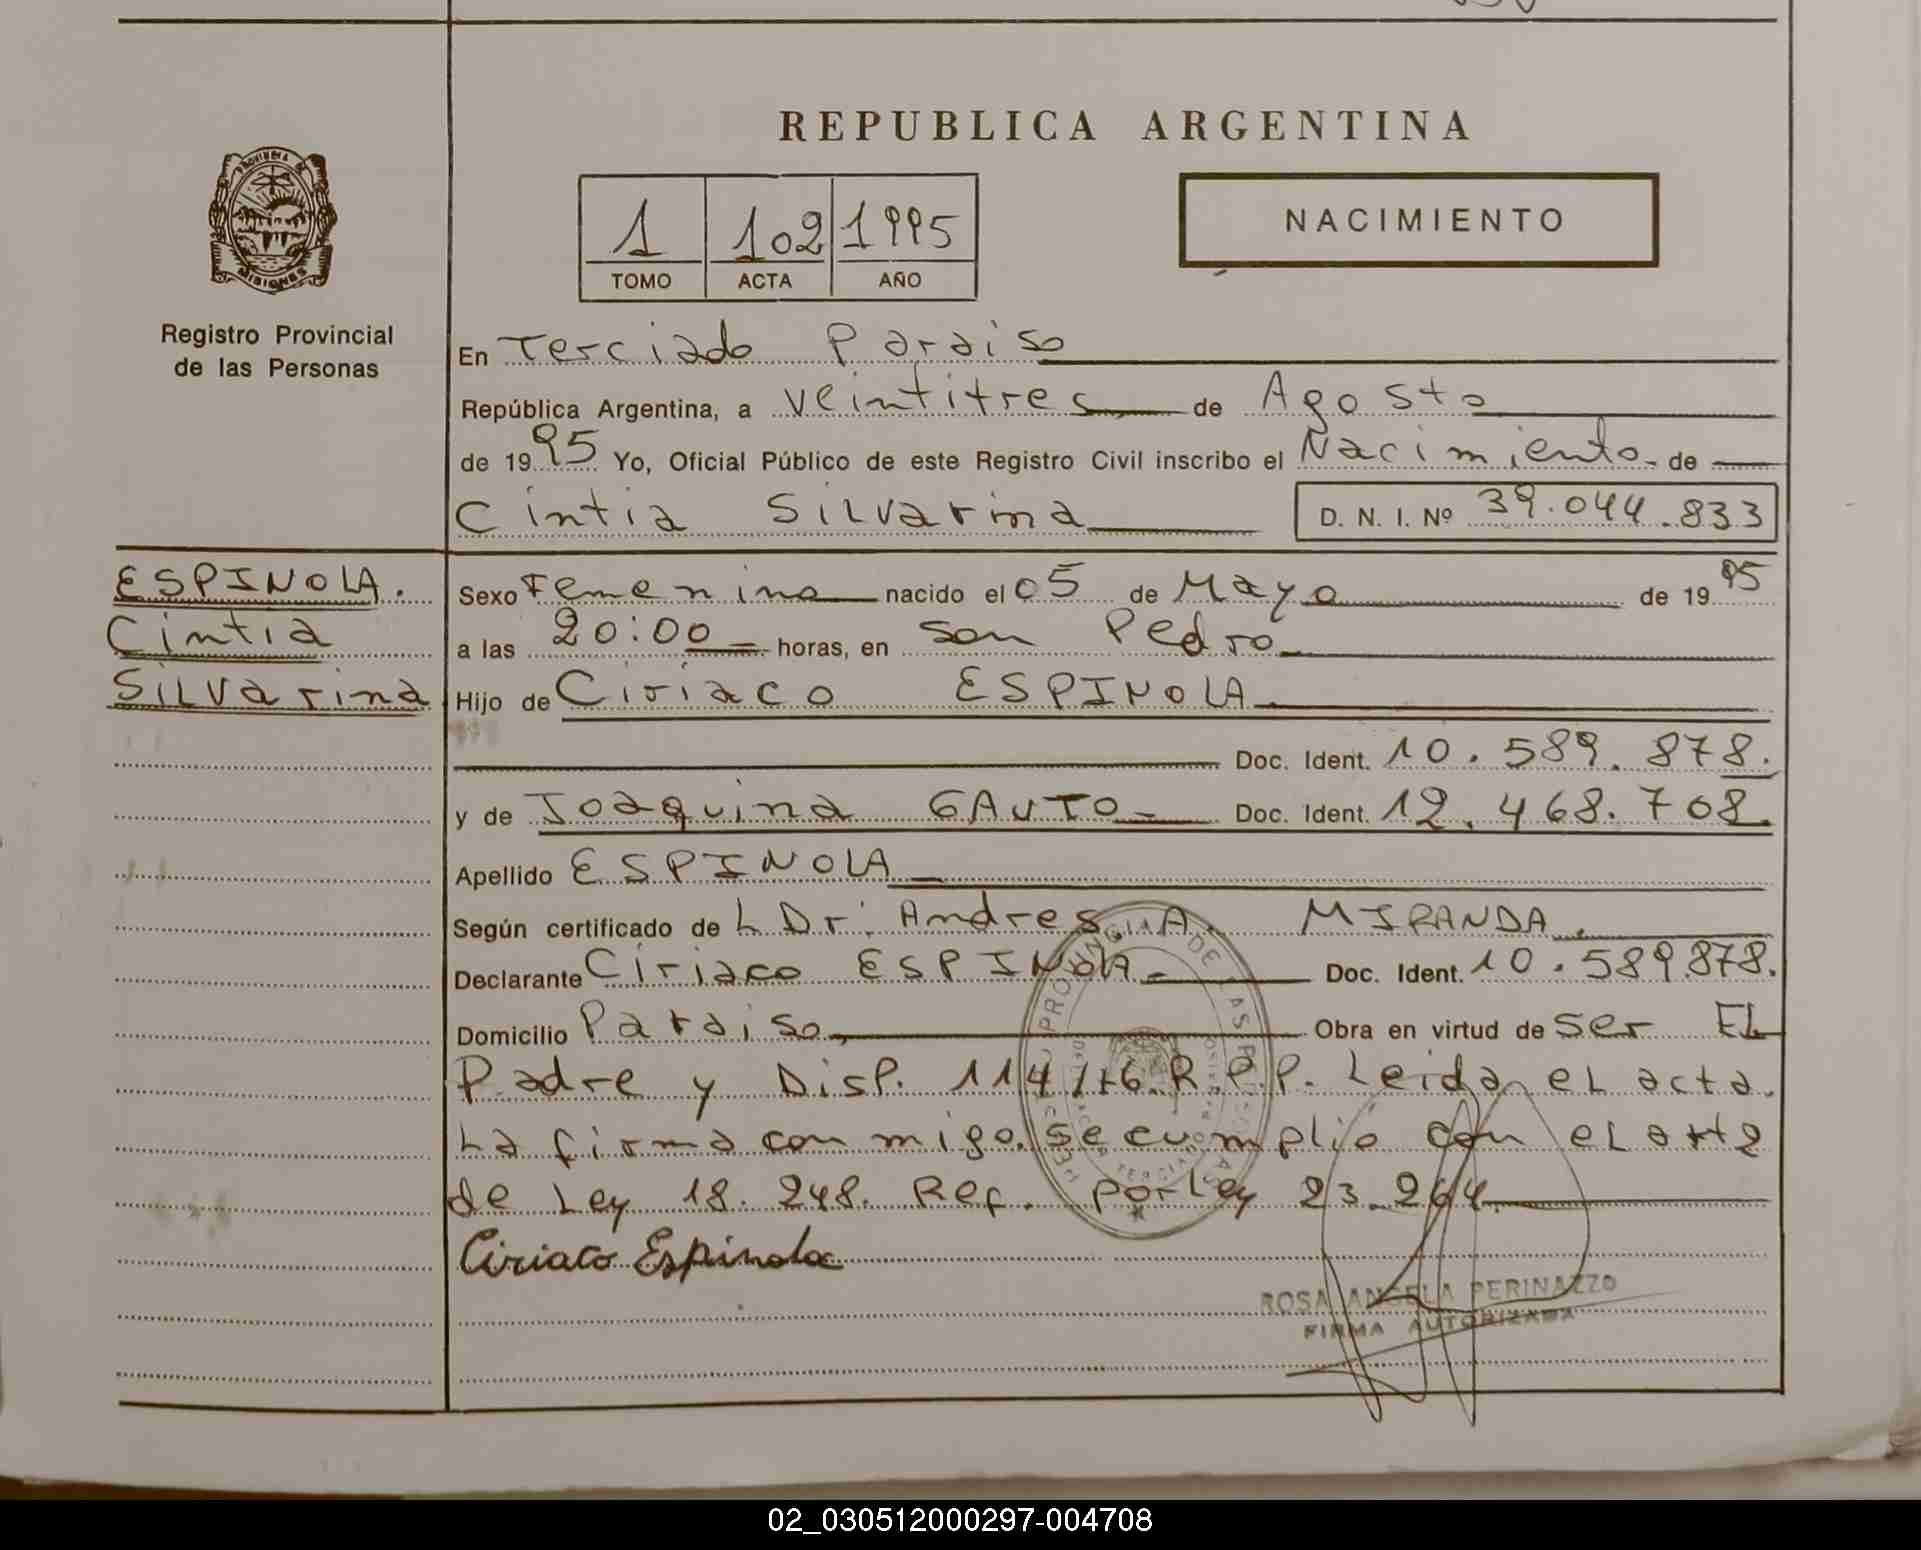 REPUBLICA ARGENTINA
PROVINCIA DE
MISIONES
Registro Provincial
de las Personas
1 102 1995
TOMO ACTA AÑO
NACIMIENTO
En Terciado Paraiso
República Argentina, a veintitres de Agosto
de 1995 Yo, Oficial Público de este Registro Civil inscribo el Nacimiento de
Cintia Silvarina D. N. I. Nº 39.044.833
ESPINOLA.
Cintia
Silvarina
Sexo Femenino nacido el 05 de Mayo de 1995
a las 20:00 horas, en San Pedro
Hijo de Ciriaco ESPINOLA
Doc. Ident. 10.589.878.
y de Joaquina GAUTO Doc. Ident. 12.468.708.
Apellido ESPINOLA
Según certificado de L Dr. Andres A. MIRANDA.
Declarante Ciriaco ESPINOLA Doc. Ident. 10.589.878.
Domicilio Paraiso Obra en virtud de ser EL
Padre y Disp. 114/76.R.P.P. Leida eL acta.
La firma con migo. se cumplio con eL art 2
de Ley 18.248. Ref. por Ley 23.264
Ciriaco Espinola
ROSA ANGELA PERINAZZO
FIRMA AUTORIZADA
02_030512000297-004708